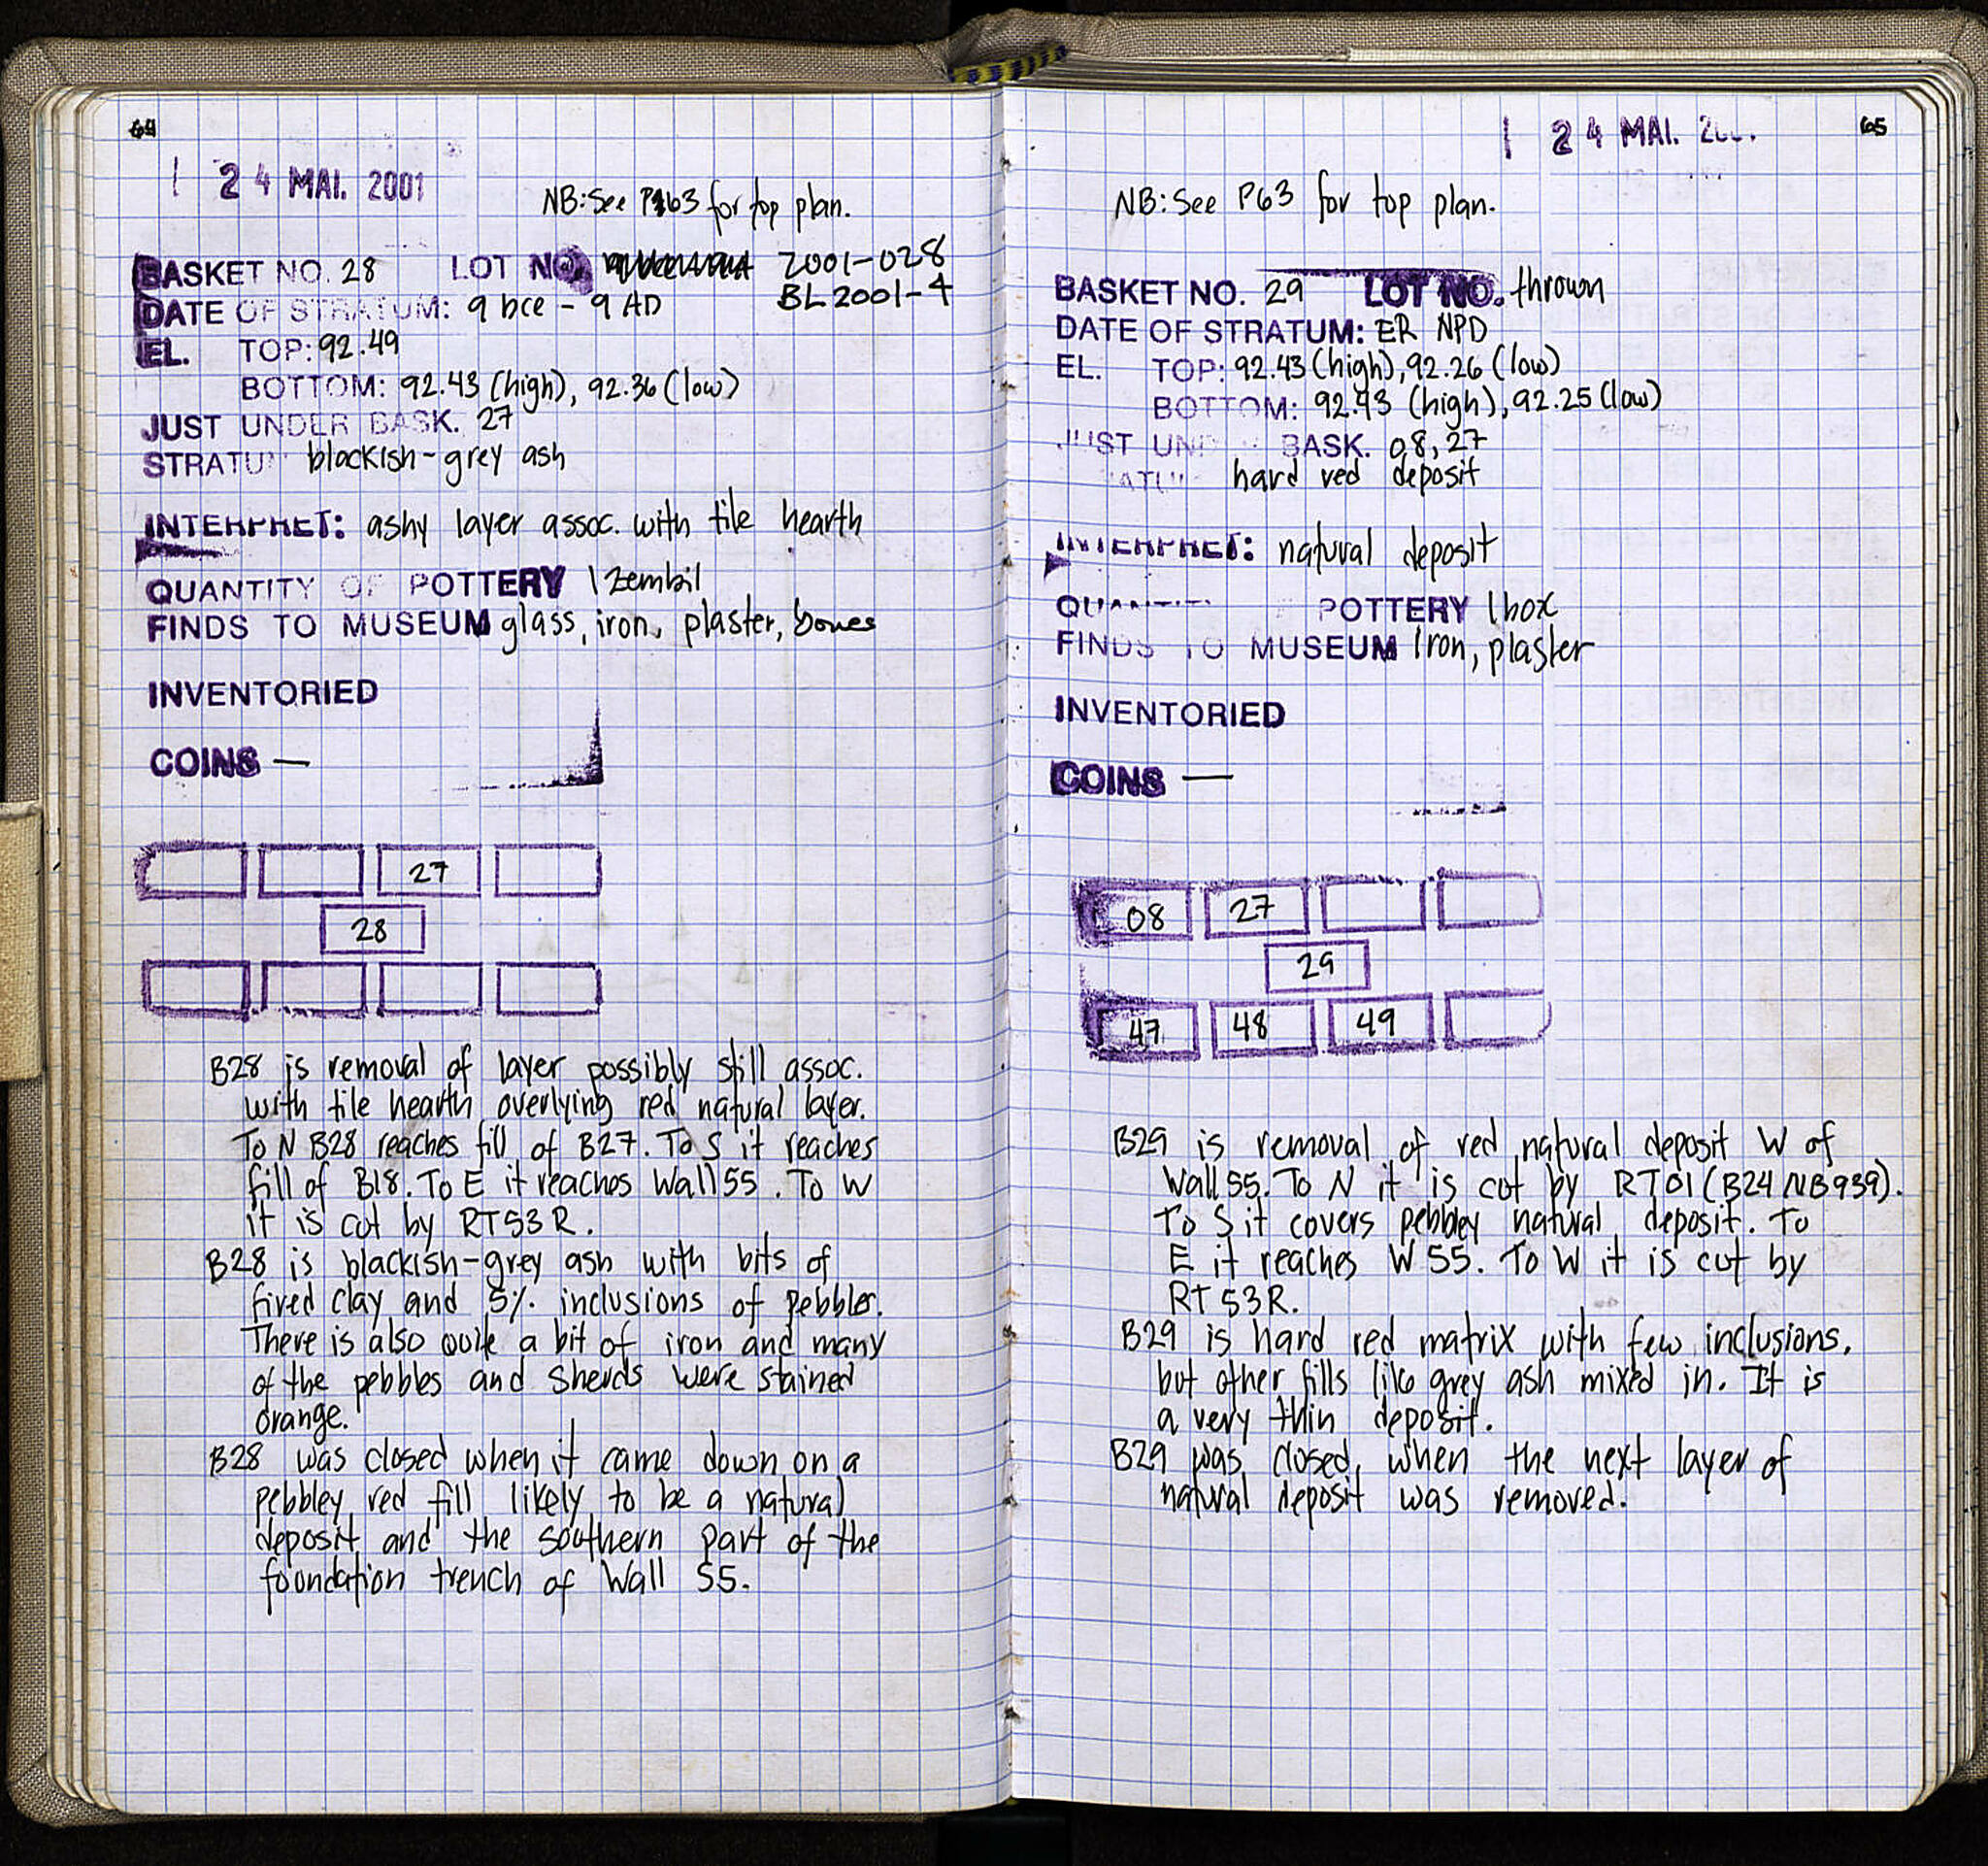 64
24 MAI. 2001
NB: See P63 for top plan.
BASKET NO. 28 LOT NO. 2001-028
BL 2001-4
DATE OF STRATUM: 9 bce - 9 AD
EL. TOP: 92.49
BOTTOM: 92.43 (high), 92.36 (low)
JUST UNDER BASK. 27
STRATU blackish-grey ash
INTERPRET: ashy layer assoc. with tile hearth
QUANTITY OF POTTERY 1 zembil
FINDS TO MUSEUM glass, iron, plaster, bones
INVENTORIED
COINS —
27
28
B28 is removal of layer possibly still assoc.
with tile hearth overlying red natural layer.
To N B28 reaches fill of B27. To S it reaches
fill of B18. To E it reaches Wall 55. To W
it is cut by RT53R.
B28 is blackish-grey ash with bits of
fired clay and 5% inclusions of pebbles.
There is also quite a bit of iron and many
of the pebbles and sherds were stained
orange.
B28 was closed when it came down on a
pebbley red fill likely to be a natural
deposit and the southern part of the
foundation trench of Wall 55.
65
24 MAI.
NB: See P63 for top plan.
BASKET NO. 29 LOT NO. thrown
DATE OF STRATUM: ER NPD
EL. TOP: 92.43 (high), 92.26 (low)
BOTTOM: 92.43 (high), 92.25 (low)
JUST UN BASK. 08, 27
ATU hard red deposit
INTERPRET: natural deposit
QUANTIT POTTERY 1 box
FINDS TO MUSEUM Iron, plaster
INVENTORIED
COINS —
08 27
29
47 48 49
B29 is removal of red natural deposit W of
Wall 55. To N it is cut by RT01 (B24 NB939).
To S it covers pebbley natural deposit. To
E it reaches W 55. To W it is cut by
RT 53R.
B29 is hard red matrix with few inclusions,
but other fills like grey ash mixed in. It is
a very thin deposit.
B29 was closed when the next layer of
natural deposit was removed.